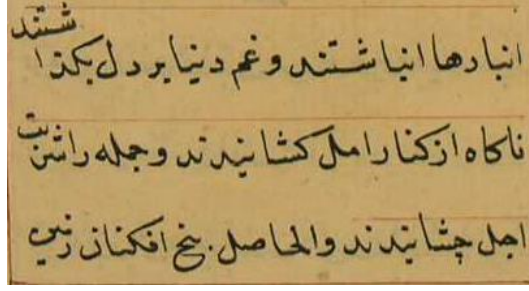 انبارها انباشتند و غم دنیا بر دل بگذاشتند
ناکاه از کنار امل کشانیدند و جمله را شربت
اجل چشانیدند و الحاصل بیخ افکنان زمین